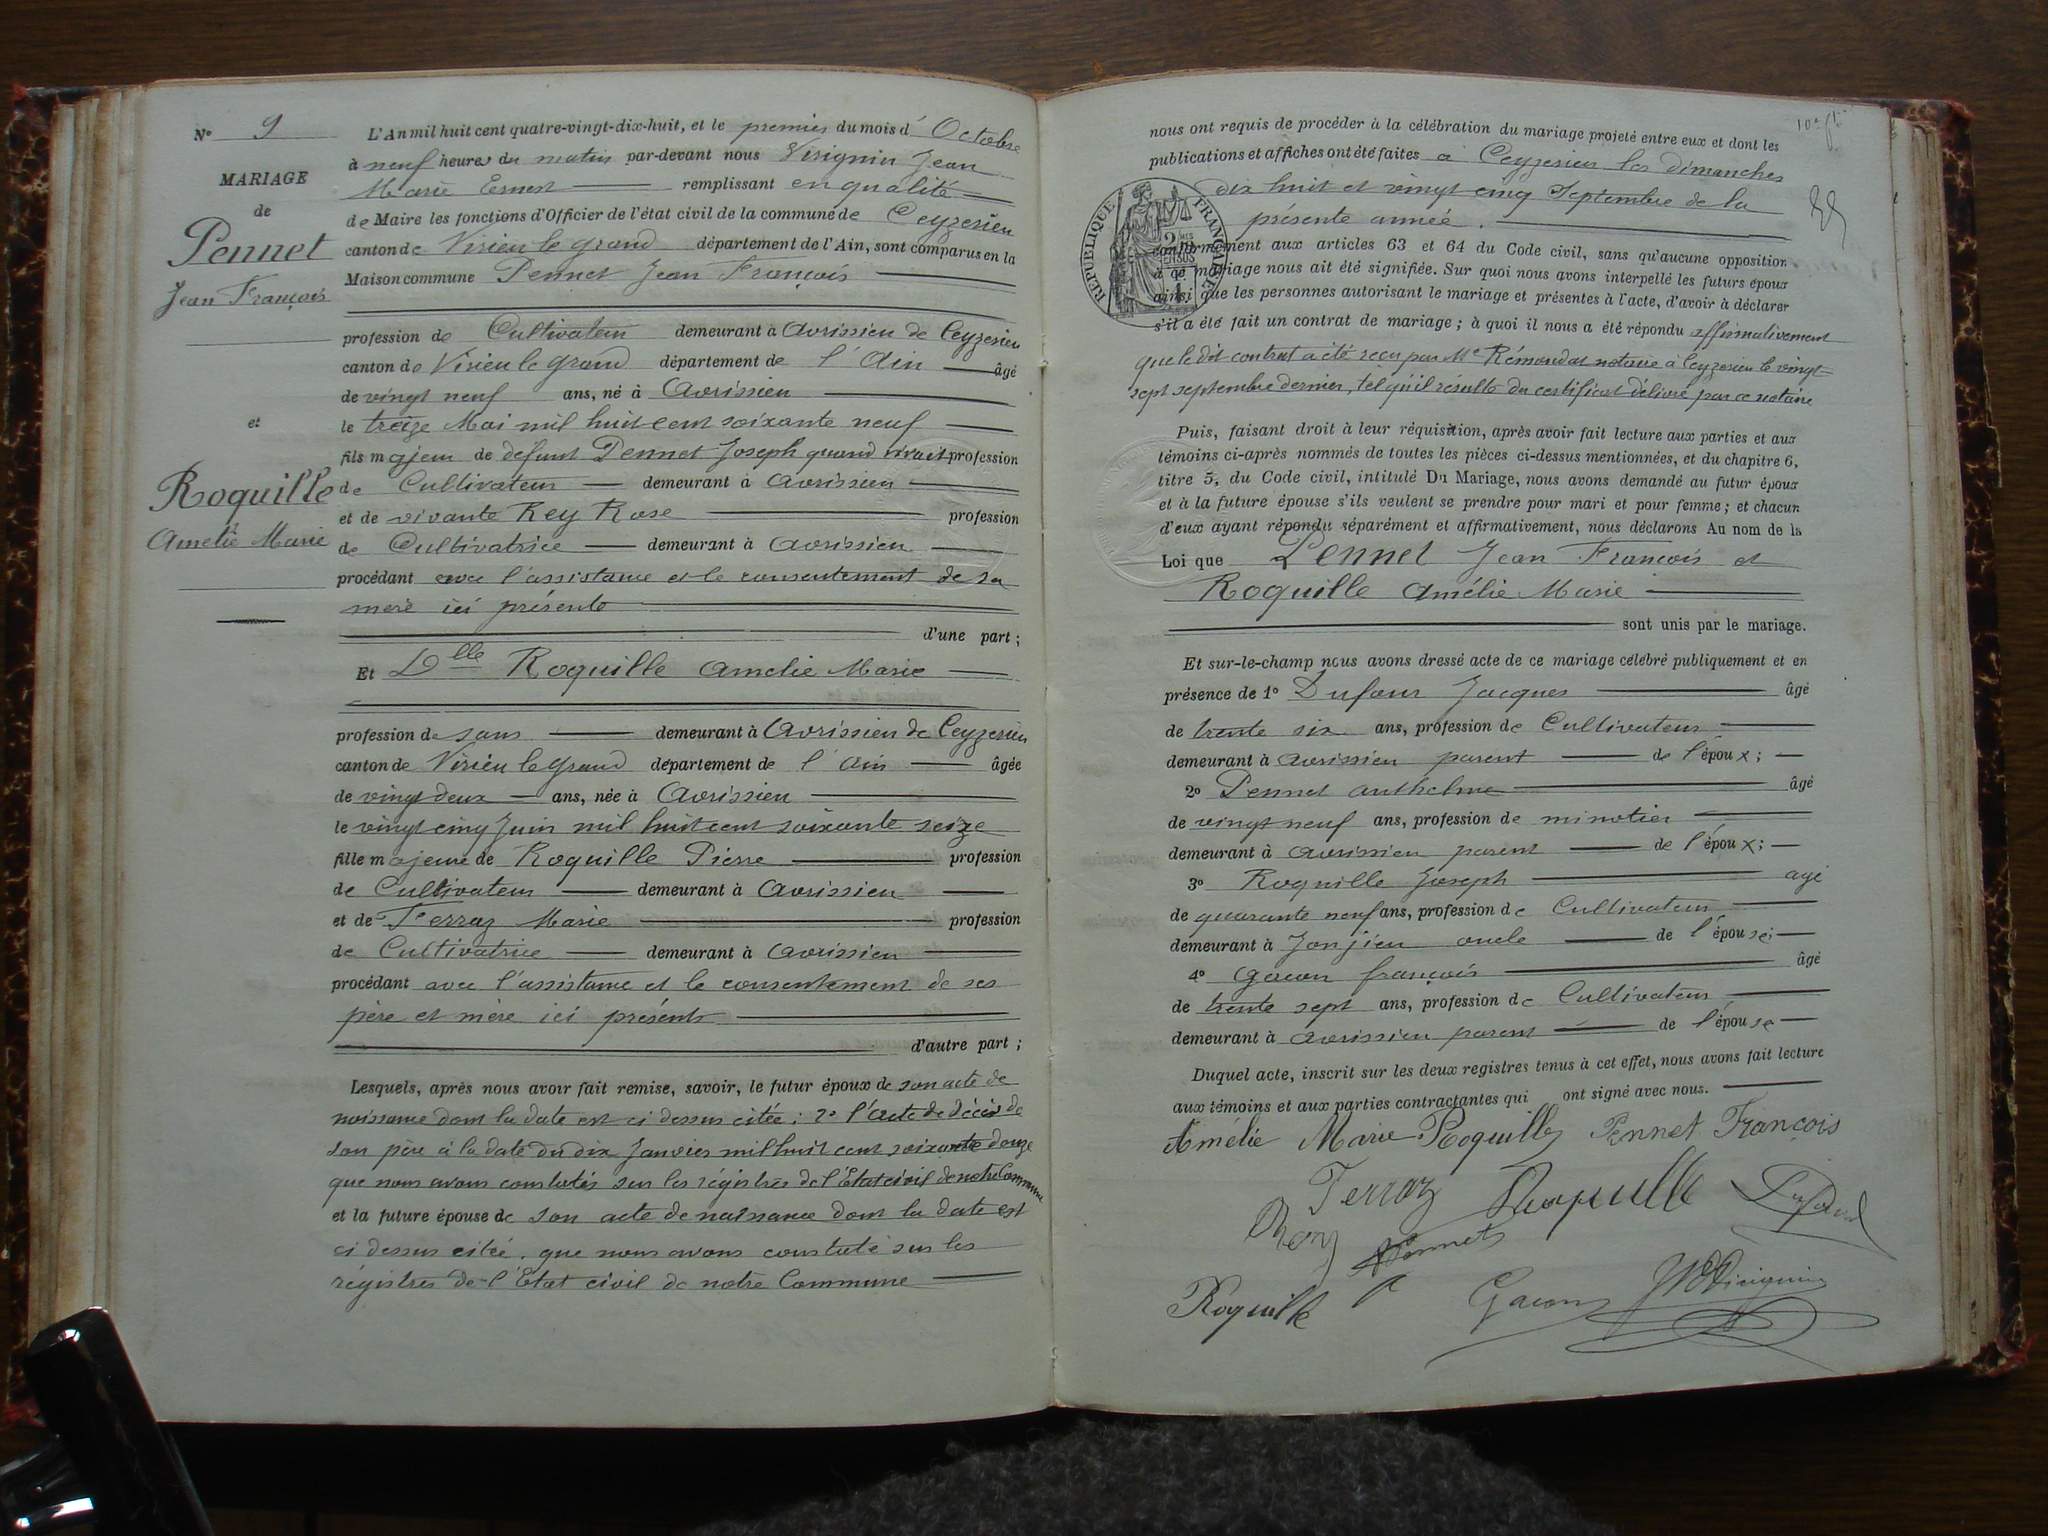 N° 9
MARIAGE
de
Pennet
Jean François
et
Roquille
Amélie Marie
L'An mil huit cent quatre-vingt-dix-huit, et le premier du mois d' Octobre
à neuf heures du matin par-devant nous Virignin Jean
Marie Ernest remplissant en qualité
de Maire les fonctions d'Officier de l'état civil de la commune de Ceyzerieu
canton de Virieu le grand département de l'Ain, sont comparus en la
Maison commune Pennet Jean François
profession de Cultivateur demeurant à Avrissieu de Ceyzerieu
canton de Virieu le grand département de l'Ain âgé
de vingt neuf ans, né à Avrissieu
le treize Mai mil huit cent soixante neuf
fils majeur de défunt Pennet Joseph quand vivait profession
de Cultivateur demeurant à Avrissieu
et de vivante Rey Rose profession
de Cultivatrice demeurant à Avrissieu
procédant avec l'assistance et le consentement de sa
mère ici présente
d'une part ;
Et Dlle Roquille Amelie Marie
profession de sans demeurant à Avrissieu de Ceyzerieu
canton de Virieu le grand département de l'Ain âgée
de vingt deux ans, née à Avrissieu
le vingt cinq Juin mil huit cent soixante seize
fille majeure de Roquille Pierre profession
de Cultivateur demeurant à Avrissieu
et de Ferraz Marie profession
de Cultivatrice demeurant à Avrissieu
procédant avec l'assistance et le consentement de ses
père et mère ici présents
d'autre part ;
Lesquels, après nous avoir fait remise, savoir, le futur époux de son acte de
naissance dont la date est ci dessus citée : 2° l'acte de décès de
son père à la date du dix Janvier mil huit cent soixante douze
que nous avons constatés sur les régistres de l'Etat civil de notre Commune
et la future épouse de son acte de naissance dont la date est
ci dessus citée, que nous avons constaté sur les
régistres de l'Etat civil de notre Commune
nous ont requis de procéder à la célébration du mariage projeté entre eux et dont les
publications et affiches ont été faites à Ceyzerieu les dimanches
dix huit et vingt cinq Septembre de la
présente année.
RÉPUBLIQUE FRANÇAISE
conformément aux articles 63 et 64 du Code civil, sans qu'aucune opposition
à ce mariage nous ait été signifiée. Sur quoi nous avons interpellé les futurs époux
ainsi que les personnes autorisant le mariage et présentes à l'acte, d'avoir à déclarer
s'il a été fait un contrat de mariage ; à quoi il nous a été répondu affirmativement
que le dit contrat a été reçu par Me Rémondat notaire à Ceyzerieu le vingt
sept septembre dernier, tel qu'il résulte du certificat délivré par ce notaire
Puis, faisant droit à leur réquisition, après avoir fait lecture aux parties et aux
témoins ci-après nommés de toutes les pièces ci-dessus mentionnées, et du chapitre 6,
titre 5, du Code civil, intitulé Du Mariage, nous avons demandé au futur époux
et à la future épouse s'ils veulent se prendre pour mari et pour femme ; et chacun
d'eux ayant répondu séparément et affirmativement, nous déclarons Au nom de la
Loi que Pennet Jean François et
Roquille Amélie Marie
sont unis par le mariage.
Et sur-le-champ nous avons dressé acte de ce mariage célébré publiquement et en
présence de 1° Dufour Jacques âgé
de trente six ans, profession de Cultivateur
demeurant à Avrissieu parent de l'époux ;
2° Pennet Anthelme âgé
de vingt neuf ans, profession de minotier
demeurant à Avrissieu parent de l'époux ;
3° Roquille Joseph agé
de quarante neuf ans, profession de Cultivateur
demeurant à Jonjieu oncle de l'épouse ;
4° Gacon françois âgé
de trente sept ans, profession de Cultivateur
demeurant à Avrissieu parent de l'épouse
Duquel acte, inscrit sur les deux registres tenus à cet effet, nous avons fait lecture
aux témoins et aux parties contractantes qui ont signé avec nous.
Amélie Marie Roquille Pennet François
Ferraz Roquille Dufour
Rey Pennet
Roquille Gacon Virignin